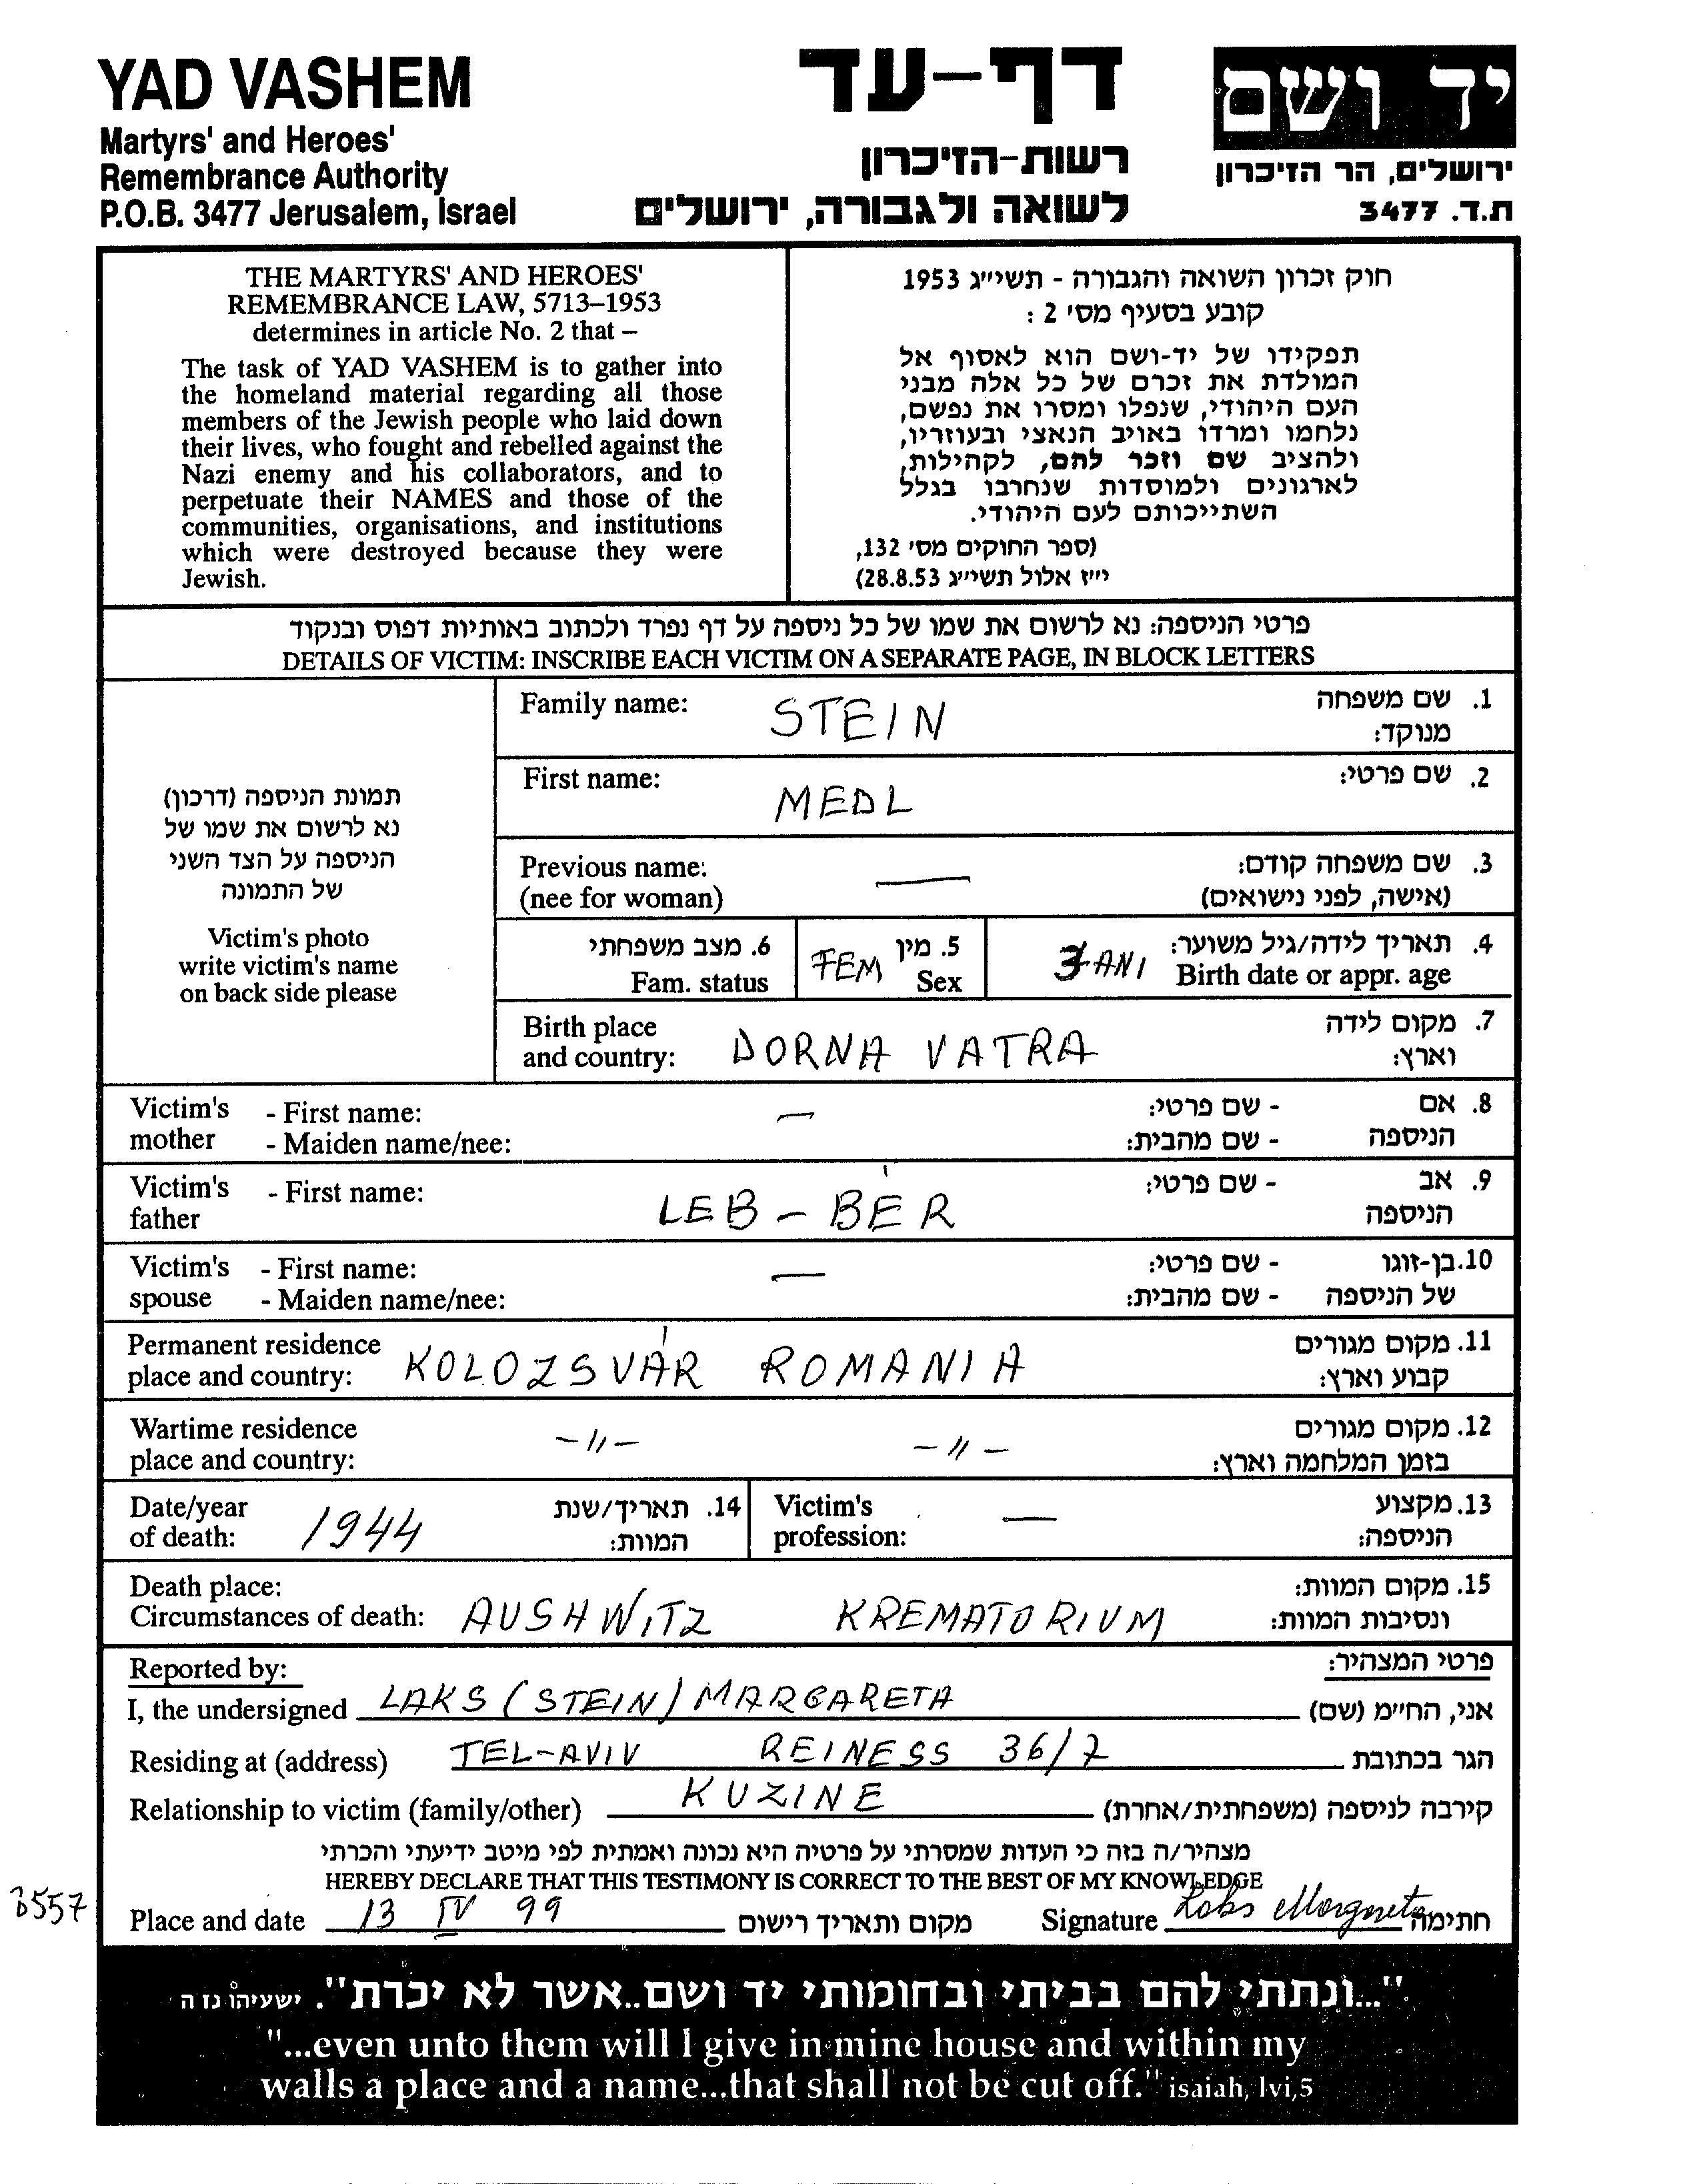 YAD VASHEM
Martyrs' and Heroes'
Remembrance Authority
P.O.B. 3477 Jerusalem, Israel
דף-עד
רשות-הזיכרון
לשואה ולגבורה, ירושלים
יד ושם
ירושלים, הר הזיכרון
ת.ד. 3477
THE MARTYRS' AND HEROES'
REMEMBRANCE LAW, 5713–1953
determines in article No. 2 that –
The task of YAD VASHEM is to gather into
the homeland material regarding all those
members of the Jewish people who laid down
their lives, who fought and rebelled against the
Nazi enemy and his collaborators, and to
perpetuate their NAMES and those of the
communities, organisations, and institutions
which were destroyed because they were
Jewish.
חוק זכרון השואה והגבורה - תשי״ג 1953
קובע בסעיף מס׳ 2 :
תפקידו של יד-ושם הוא לאסוף אל
המולדת את זכרם של כל אלה מבני
העם היהודי, שנפלו ומסרו את נפשם,
נלחמו ומרדו באויב הנאצי ובעוזריו,
ולהציב שם וזכר להם, לקהילות,
לארגונים ולמוסדות שנחרבו בגלל
השתייכותם לעם היהודי.
(ספר החוקים מס׳ 132,
י״ז אלול תשי״ג 28.8.53)
פרטי הניספה: נא לרשום את שמו של כל ניספה על דף נפרד ולכתוב באותיות דפוס ובנקוד
DETAILS OF VICTIM: INSCRIBE EACH VICTIM ON A SEPARATE PAGE, IN BLOCK LETTERS
תמונת הניספה (דרכון)
נא לרשום את שמו של
הניספה על הצד השני
של התמונה
Victim's photo
write victim's name
on back side please
Family name: STEIN 1. שם משפחה
מנוקד:
First name: MEDL 2. שם פרטי:
Previous name: — 3. שם משפחה קודם:
(nee for woman) (אישה, לפני נישואים)
6. מצב משפחתי FEM 5. מין 3 ANI 4. תאריך לידה/גיל משוער:
Fam. status Sex Birth date or appr. age
Birth place DORNA VATRA 7. מקום לידה
and country: וארץ:
Victim's - First name: — - שם פרטי: 8. אם
mother - Maiden name/nee: - שם מהבית: הניספה
Victim's - First name: LEB - BÉR - שם פרטי: 9. אב
father הניספה
Victim's - First name: — - שם פרטי: 10. בן-זוגו
spouse - Maiden name/nee: - שם מהבית: של הניספה
Permanent residence KOLOZSVÁR ROMANIA 11. מקום מגורים
place and country: קבוע וארץ:
Wartime residence -〃- -〃- 12. מקום מגורים
place and country: בזמן המלחמה וארץ:
Date/year 1944 14. תאריך/שנת Victim's — 13. מקצוע
of death: המוות: profession: הניספה:
Death place: 15. מקום המוות:
Circumstances of death: AUSHWITZ KREMATORIUM ונסיבות המוות:
Reported by: פרטי המצהיר:
I, the undersigned LAKS (STEIN) MARGARETA אני, החי״מ (שם)
Residing at (address) TEL-AVIV REINESS 36/7 הגר בכתובת
Relationship to victim (family/other) KUZINE קירבה לניספה (משפחתית/אחרת)
מצהיר/ה בזה כי העדות שמסרתי על פרטיה היא נכונה ואמתית לפי מיטב ידיעתי והכרתי
HEREBY DECLARE THAT THIS TESTIMONY IS CORRECT TO THE BEST OF MY KNOWLEDGE
3557
Place and date 13 IV 99 מקום ותאריך רישום Signature Laks Margareta חתימה
"...ונתתי להם בביתי ובחומותי יד ושם..אשר לא יכרת". ישעיהו נו ה
"...even unto them will I give in mine house and within my
walls a place and a name...that shall not be cut off." isaiah, lvi,5